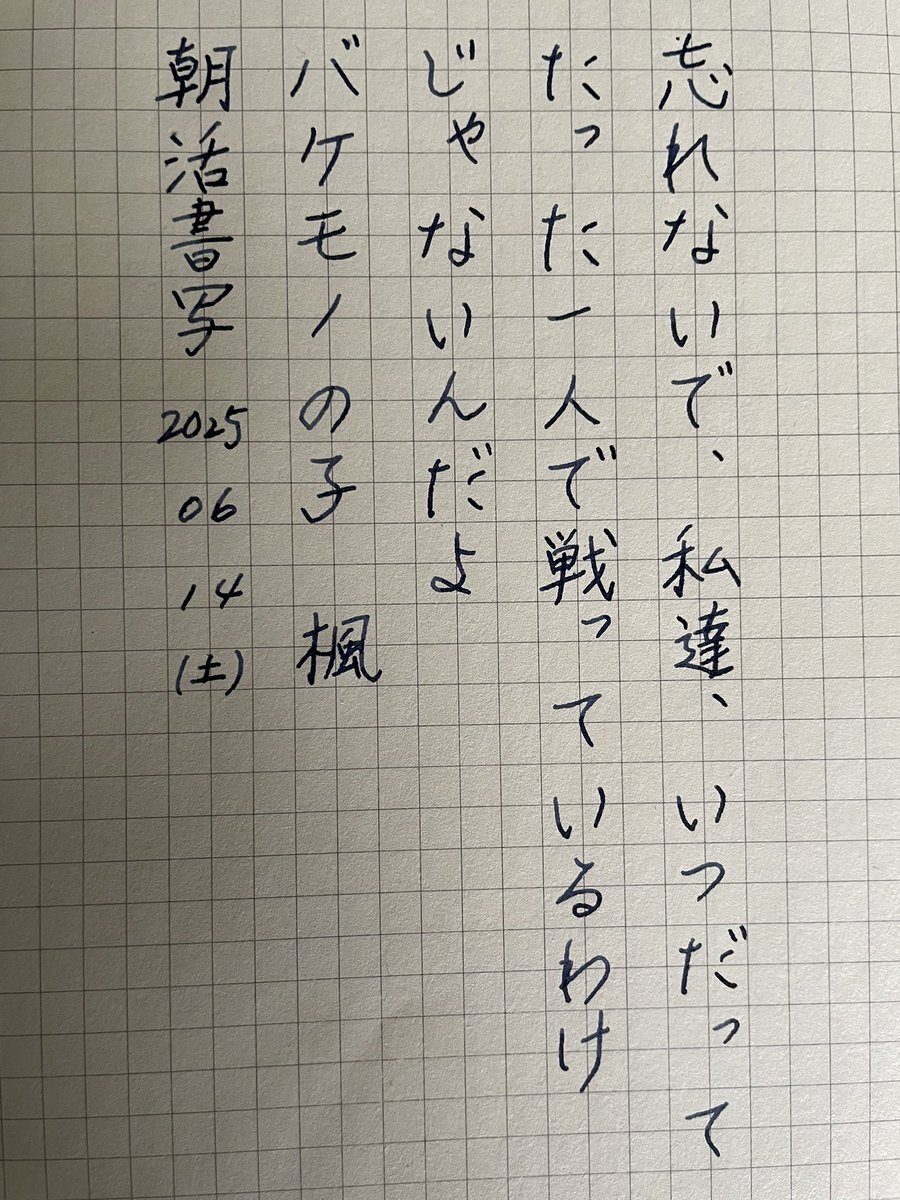 忘れないで、私達、いつだって
たった一人で戦っているわけ
じゃないんだよ
バケモノの子 楓
朝活書写 2025 06 14 (土)